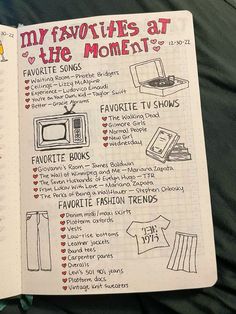 MY FAVORITES AT
THE MOMENT
12-30-22
FAVORITE SONGS
Waiting Room - Phoebe Bridgers
Ceilings - Lizzy McAlpine
Experience - Ludovico Einaudi
You're on Your Own Kid - Taylor Swift
Better - Gracie Abrams
FAVORITE TV SHOWS
The Walking Dead
Gilmore Girls
Normal People
New Girl
Wednesday
FAVORITE BOOKS
Giovanni's Room - James Baldwin
The Wall of Winnipeg and Me - Mariana Zapata
The Seven Husbands of Evelyn Hugo - TJR
From Lukov With Love - Mariana Zapata
The Perks of Being a Wallflower - Stephen Chbosky
FAVORITE FASHION TRENDS
Denim midi/maxi skirts
Platform
Vests
Low-rise bottoms
Leather jackets
Band tees
Carpenter pants
Overalls
Levi's 501 90's jeans
Platform docs
Vintage knit sweaters
1971